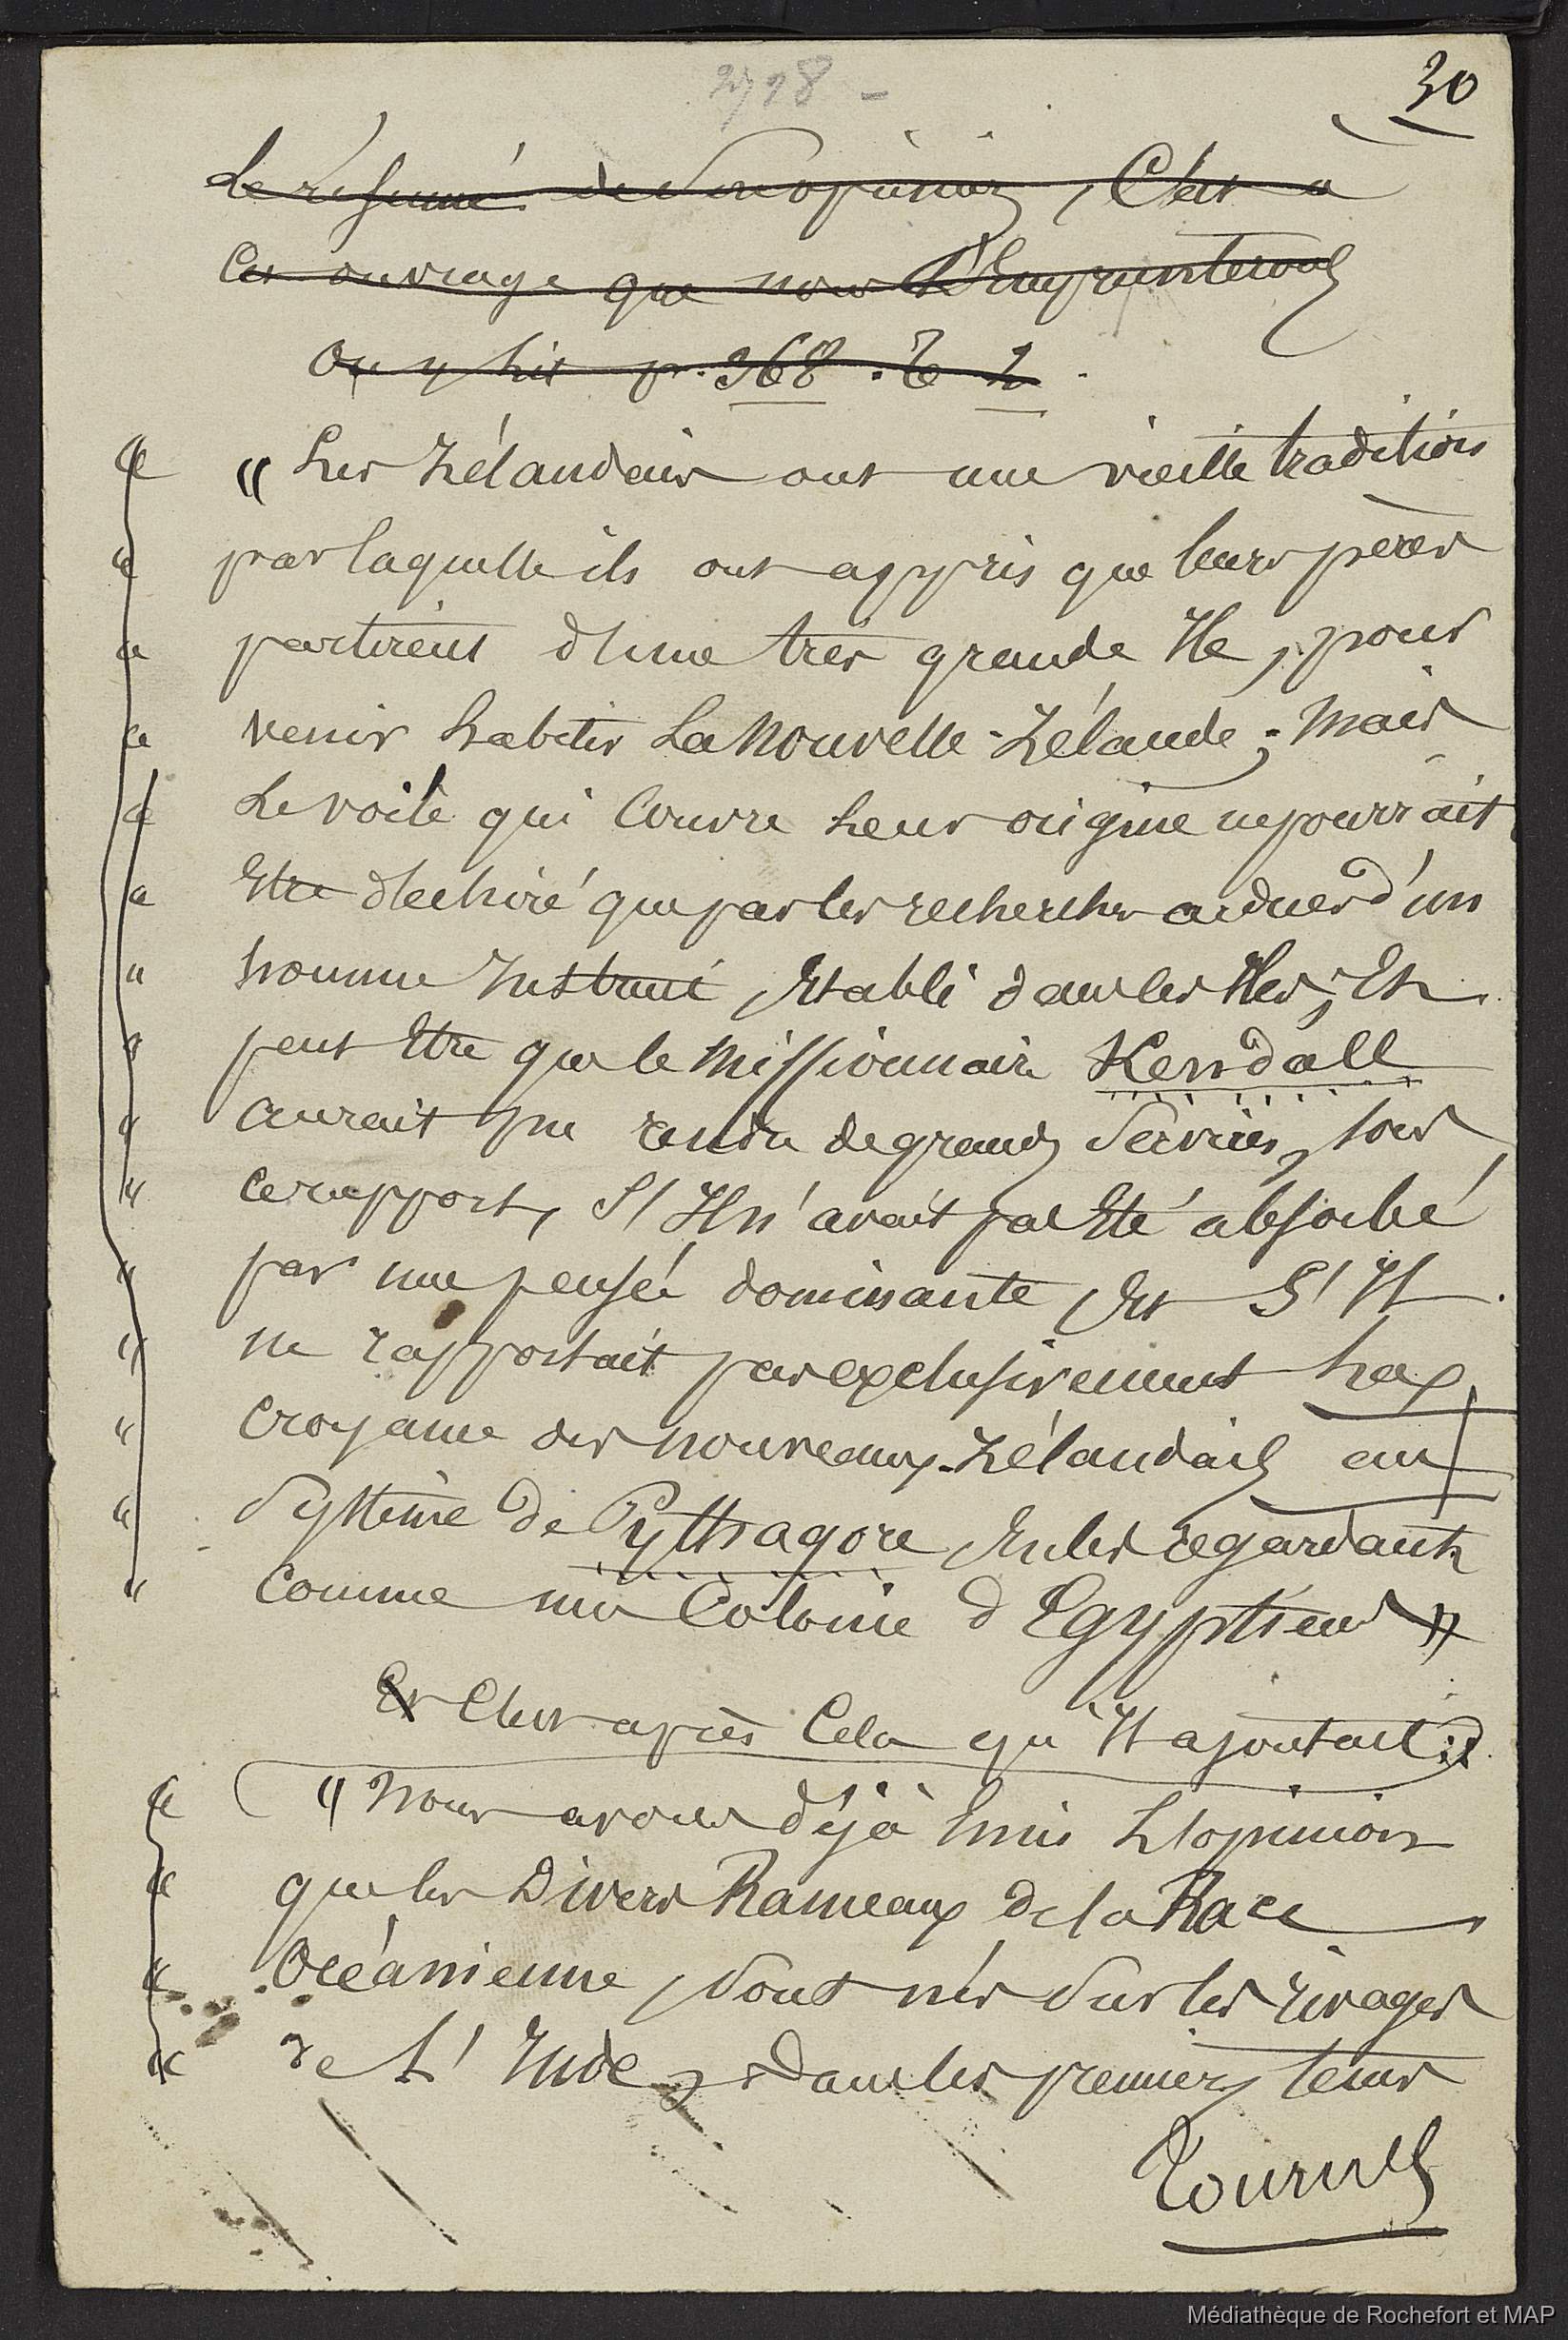 2718 -
30
Le résumé de Son opinion, C'est à
Cet ouvrage que nous l'Emprunterons
On y lit p. 368. T 2.
« "Les Zélandais ont une vieille tradition
« par laquelle ils ont appris que leurs pères
« partirent d'une très grande Ile, pour
« venir habiter La Nouvelle-Zélande ; Mais
« Le voile qui Couvre Leur origine ne pourrait
« Etre déchiré que par les recherches ardues d'un
« homme Instruit Etabli dans les Iles ; Et
« peut Etre que le Missionnaire Kendall
« aurait pu rendre de grands Services, sous
« ce rapport, S'Il n'avait pas Eté absorbé
« par une pensée dominante Et S'Il
« ne rapportait pas exclusivement La
« Croyance des nouveaux-Zélandais au
« Système de Pythagore En les regardant
« Comme une Colonie d'Egyptiens "
Et C'est après Cela qu'Il ajoutait :
« "Nous avons déjà Emis L'opinion
« que les Divers Rameaux de la Race
« Océanienne, Sont nés Sur les rivages
« de L'Inde, Dans les premiers tems
Tournez
Médiathèque de Rochefort et MAP